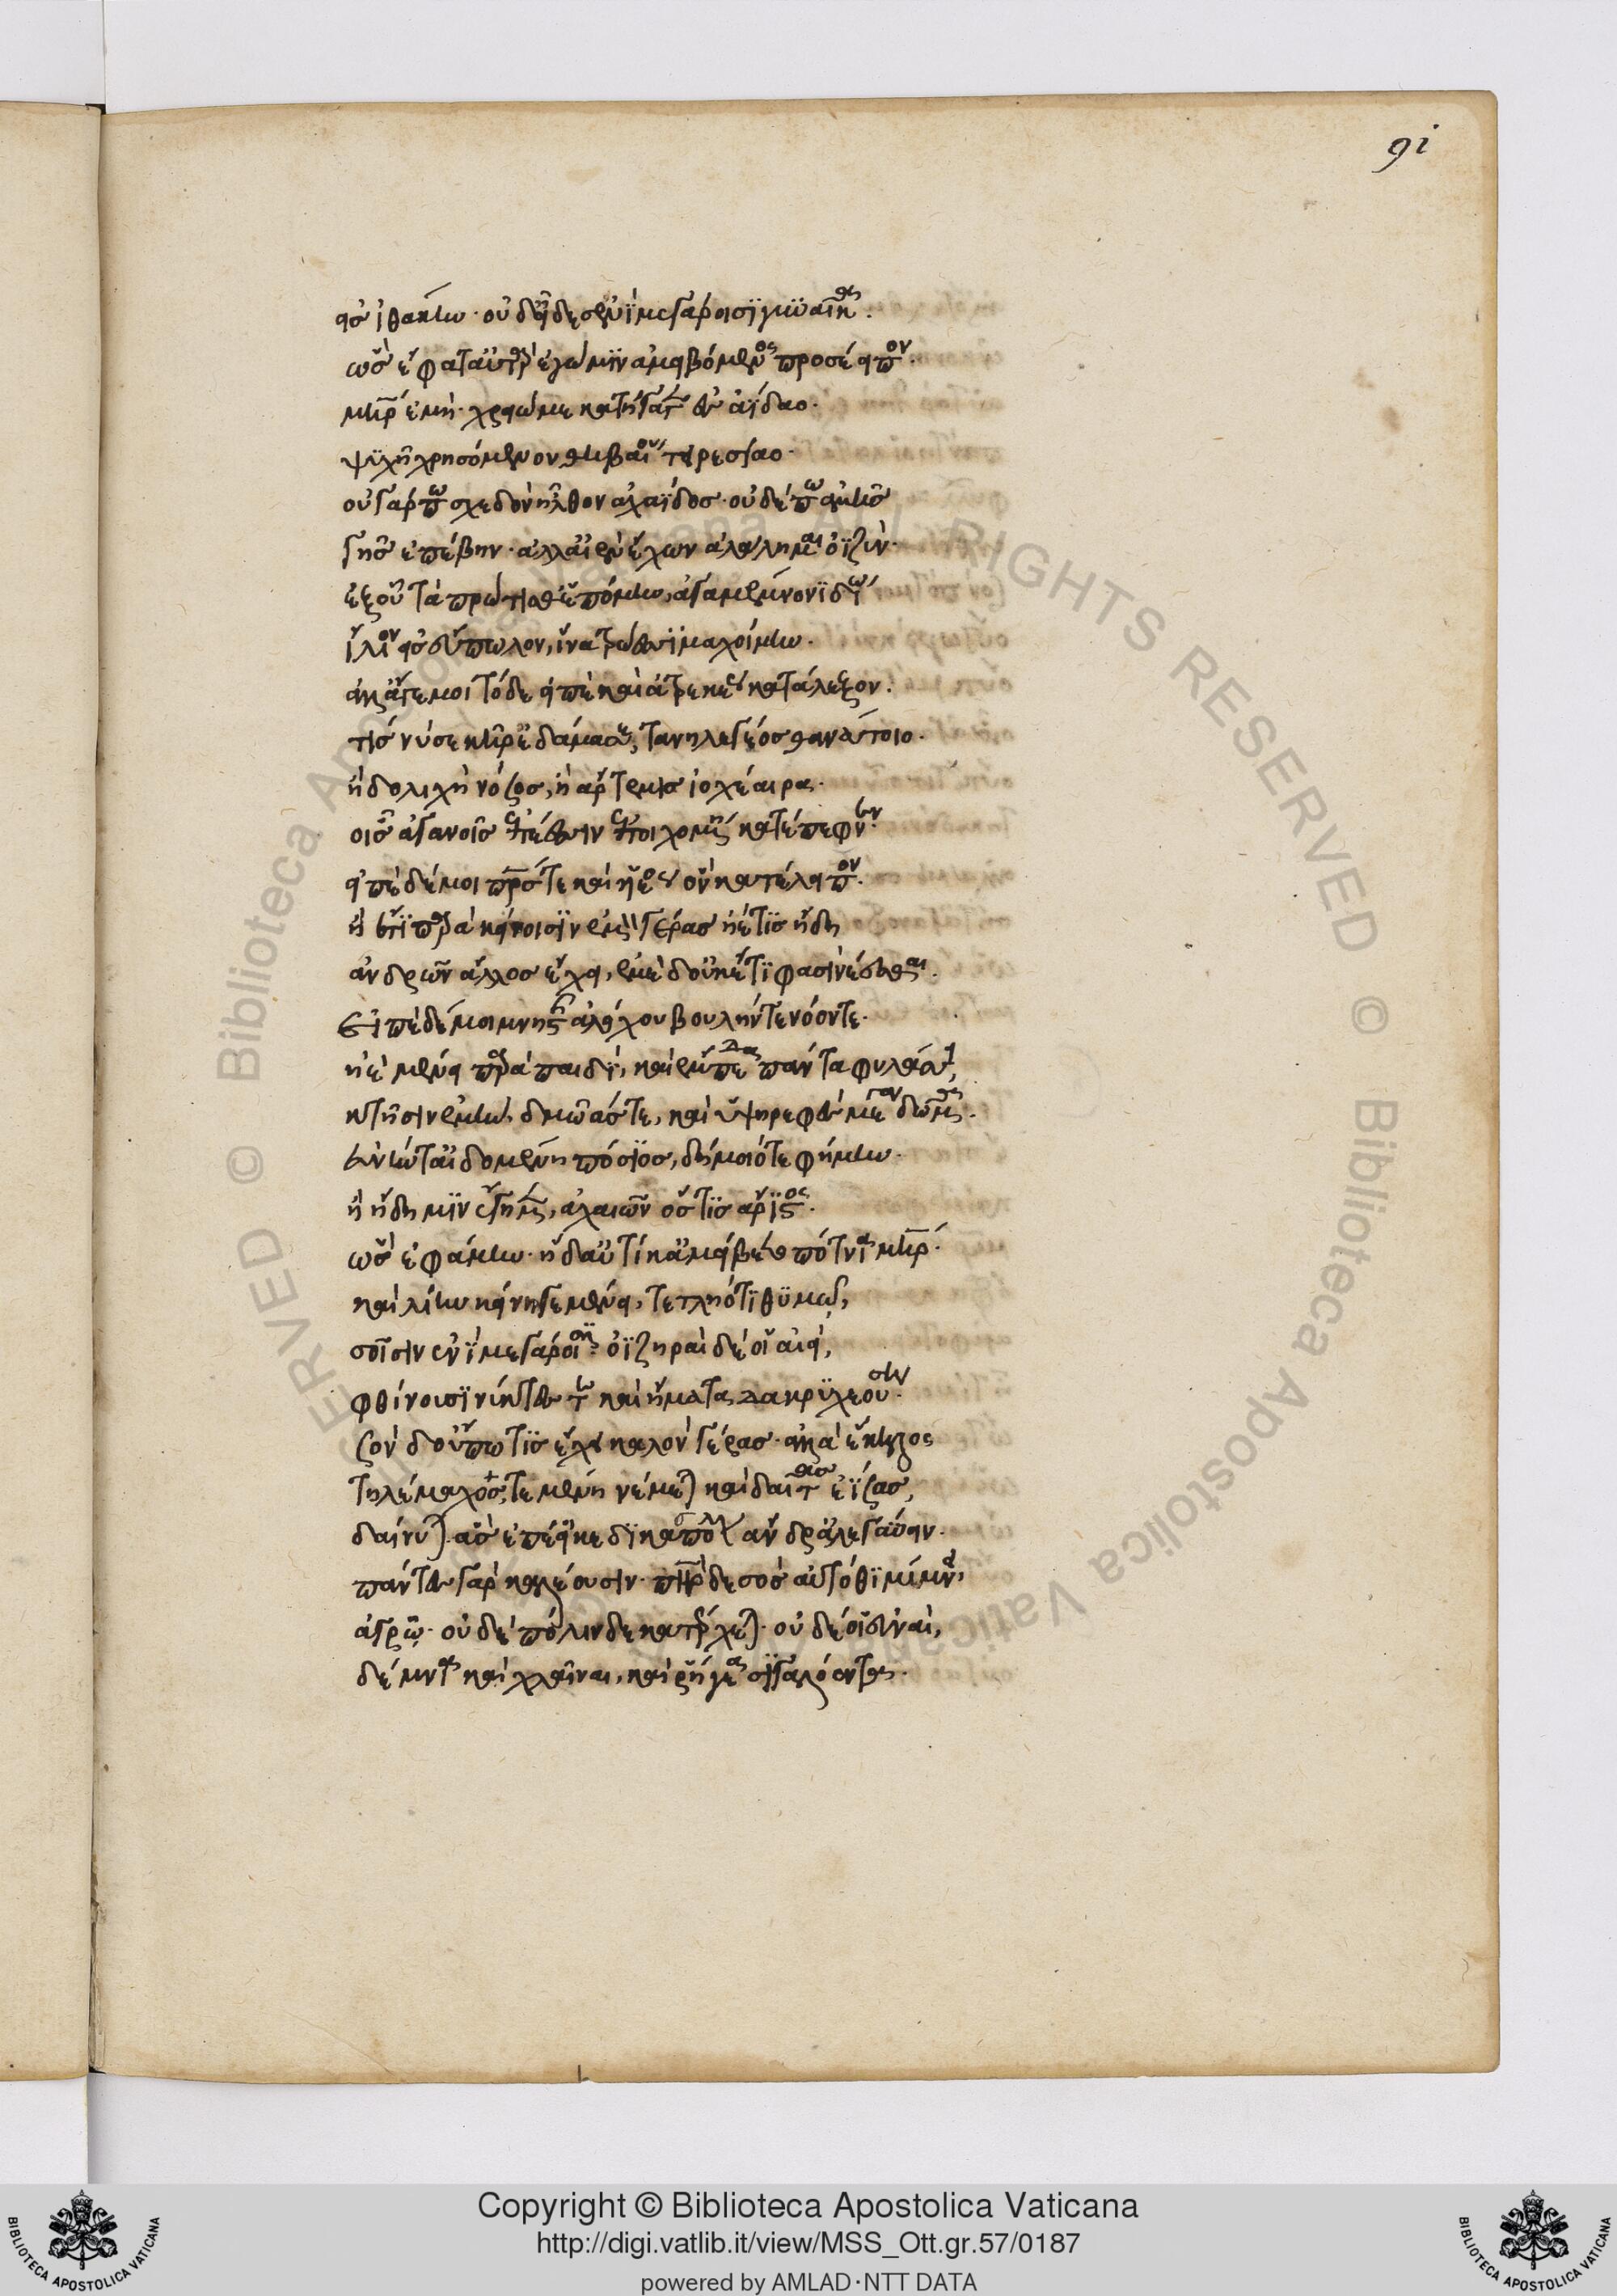 91
εἰς ἰθάκην· οὐδ' εἶδες ἐνὶ μεγάροισι γυναῖκα.
ὣς ἔφατ' αὐτὰρ ἐγώ μιν ἀμειβόμενος προσέειπον.
μῆτερ ἐμὴ· χρειώ με κατήγαγεν εἰς ἀΐδαο.
ψυχῇ χρησόμενον θηβαίου τειρεσίαο.
οὐ γάρ πω σχεδὸν ἦλθον ἀχαΐδος· οὐδέ πω ἀμῆς
γῆς ἐπέβην· ἀλλ' αἰὲν ἔχων ἀλάλημαι ὀϊζὺν.
ἐξ οὗ τὰ πρώτισθ' ἑπόμην ἀγαμέμνονι δίῳ
ἴλιον εἰς εὔπωλον, ἵνα τρώεσσι μαχοίμην.
ἀλλ' ἄγε μοι τόδε εἰπὲ καὶ ἀτρεκέως κατάλεξον.
τίς νύ σε κῆρ ἐδάμασε τανηλεγέος θανάτοιο.
ἢ δολιχὴ νόσος, ἢ ἄρτεμις ἰοχέαιρα.
οἷς ἀγανοῖς βελέεσσιν ἐποιχομένη κατέπεφνεν.
εἰπὲ δέ μοι πατρός τε καὶ υἱέος ὃν κατέλειπον.
ἢ ἔτι παρὰ κείνοισιν ἐμὸν γέρας ἠέ τις ἤδη
ἀνδρῶν ἄλλος ἔχει, ἐμὲ δ' οὐκέτι φασὶ νέεσθαι.
εἰπὲ δέ μοι μνηστῆς ἀλόχου βουλήν τε νόον τε.
ἠὲ μένει παρὰ παιδὶ, καὶ ἔμπεδα πάντα φυλάσσει,
κτῆσιν ἐμὴν, δμῶάς τε, καὶ ὑψηρεφὲς μέγα δῶμα.
εὐνήν τ' αἰδομένη πόσιος, δήμοιό τε φήμην.
ἢ ἤδη μιν ἔγημεν, ἀχαιῶν ὅστις ἄριστος.
ὣς ἐφάμην· ἡ δ' αὐτίκ' ἀμείβετο πότνια μήτηρ.
καὶ λίην κείνη γε μένει, τετληότι θυμῷ,
σοῖσιν ἐνὶ μεγάροισιν· ὀϊζυραὶ δέ οἱ αἰεὶ,
φθίνουσι νύκτες τε καὶ ἤματα δακρυχεούσῃ.
σὸν δ' οὔπω τις ἔχει καλὸν γέρας· ἀλλὰ ἕκηλος
τηλέμαχος τεμένη νέμεται καὶ δαῖτας ἐΐσας,
δαίνυται· ἃς ἐπέοικε δικασπόλον ἄνδρ' ἀλεγύνειν.
πάντες γὰρ καλέουσιν· πατὴρ δὲ σὸς αὐτόθι μίμνει
ἀγρῷ· οὐδὲ πόλινδε κατέρχεται· οὐδέ οἱ εὐναὶ,
δέμνια καὶ χλαῖναι, καὶ ῥήγεα σιγαλόεντα.
Copyright © Biblioteca Apostolica Vaticana
http://digi.vatlib.it/view/MSS_Ott.gr.57/0187
powered by AMLAD·NTT DATA